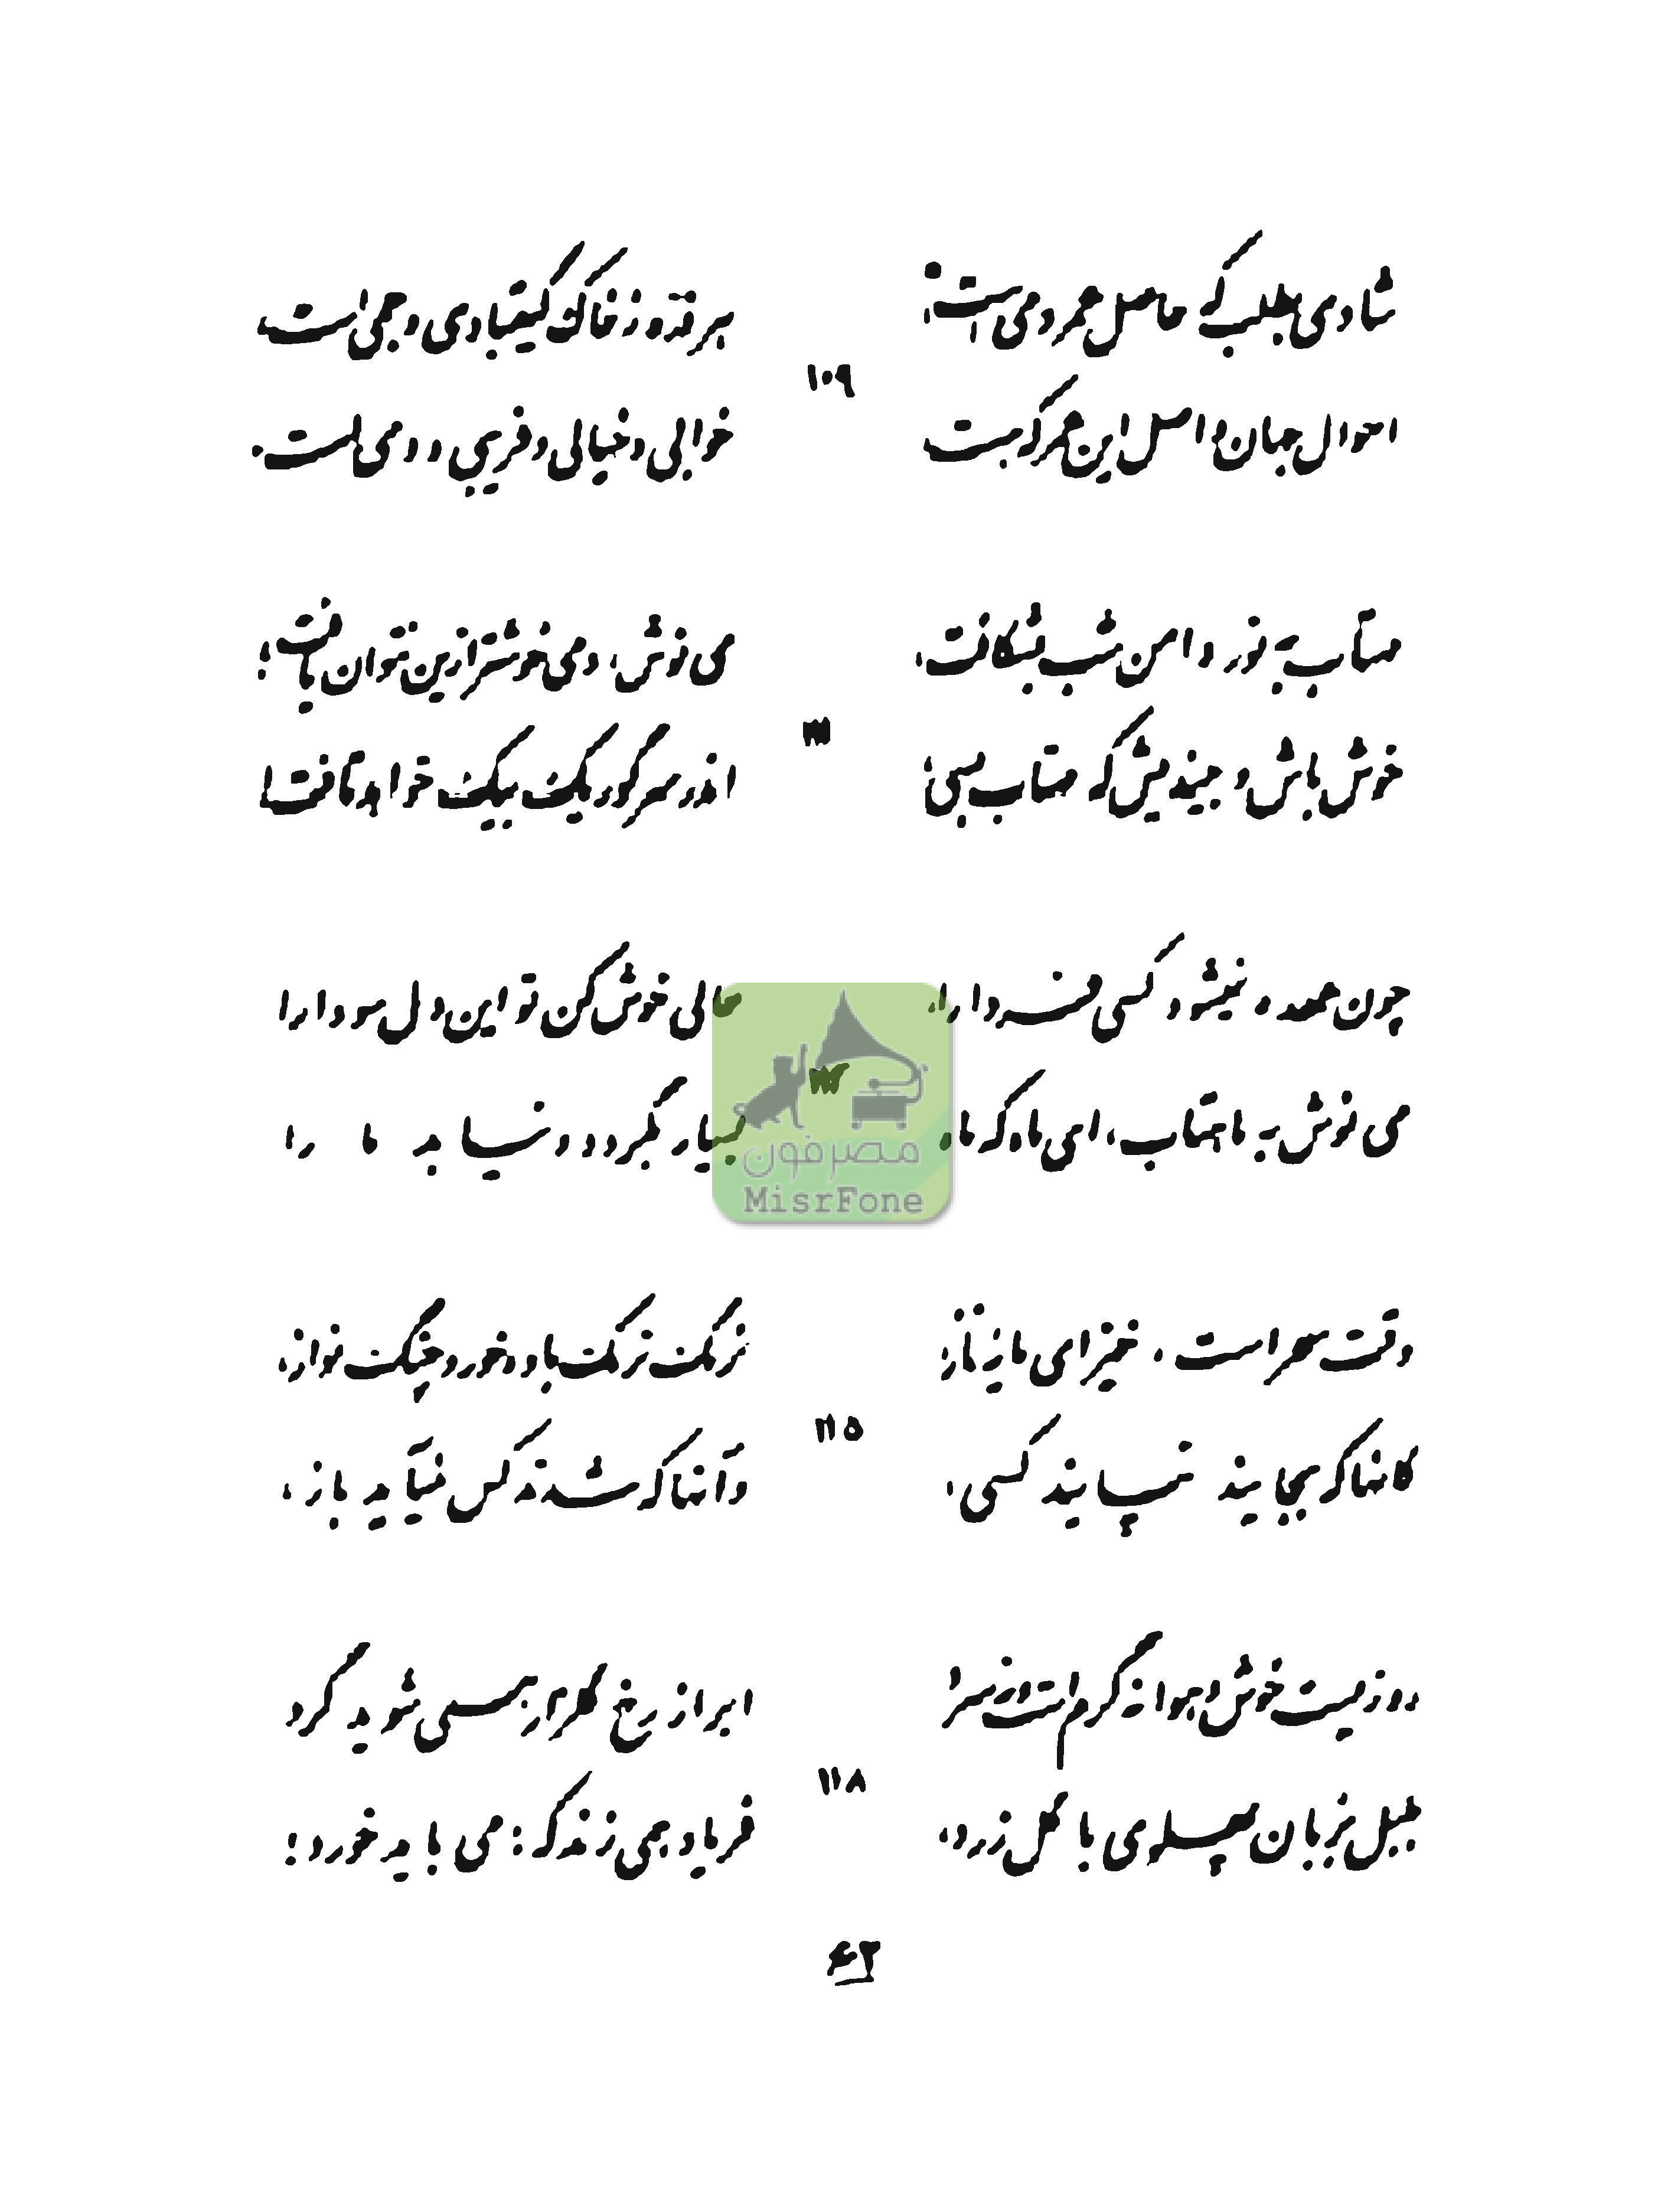 شادی بطلب که حاصل عمر دمی است، هر ذره ز خاک کیقبادی و جمی است،
۱۰۹
احوال جهان و اصل این عمر که هست خوابی و خیالی و فریبی و دمی است.
مهتاب به نور دامن شب بشکافت، می نوش، دمی خوشتر ازین نتوان یافت؛
۱۱۱
خوش باش و بیندیش که مهتاب بسی اندر سر گور یک بیک خواهد تافت!
چون عهده نمیشود کسی فردا را، حالی خوش کن تو این دل سودا را
می نوش به ماهتاب، ای ماه که ماه بسیار بگردد و نیابد ما را
مصرفون
MisrFone
وقت سحر است، خیز ای مایه ناز، نرمک نرمک باده خور و چنگ نواز،
۱۱۵
کانها که بجایند نپایند کسی، و آنها که شدند کس نمیآید باز،
روزیست خوش و هوا نه گرم است و نه سرد ابر از رخ گلزار همی شوید گرد
۱۱۸
بلبل بزبان پهلوی با گل زرد، فریاد همی زند که: می باید خورد؛
۶۲